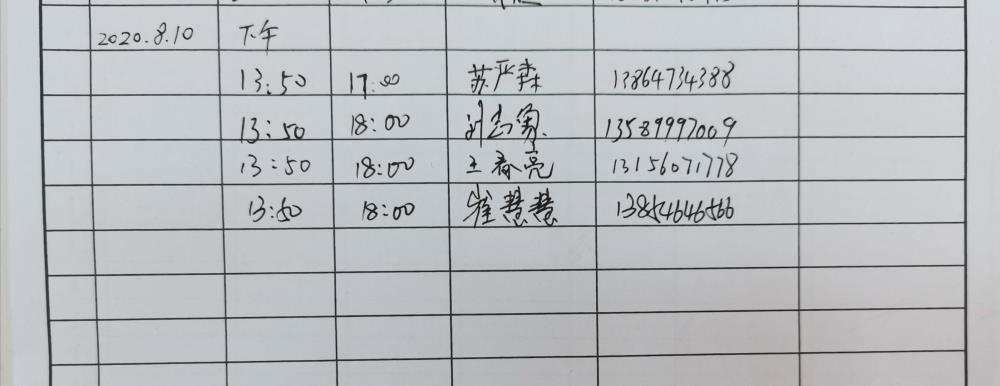 2020.8.10 下午
13:50 17:00 苏严森 13864734388
13:50 18:00 刘志勇 13589997009
13:50 18:00 王春亮 13156071778
13:50 18:00 崔慧慧 13854646566